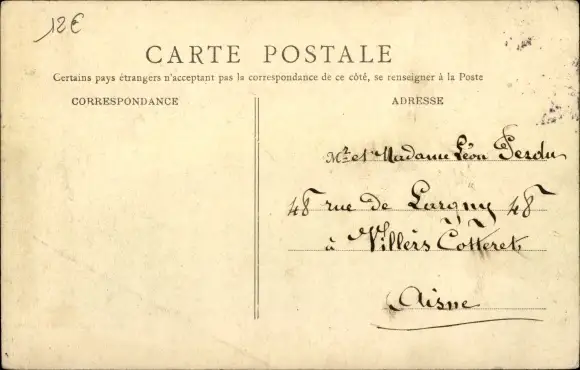 12€
CARTE POSTALE
Certains pays étrangers n'acceptant pas la correspondance de ce côté, se renseigner à la Poste
CORRESPONDANCE
ADRESSE
Mr et Madame Léon Perdu
48 rue de Largny 48
à Villers Cotterets
Aisne